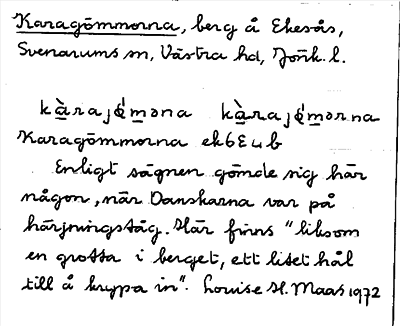 Karagömmorna, berg å Ekesås,
Svenarums sn, Västra hd, Jönk. l.
kàrajǿməna kàrajǿmərna
Karagömmorna ek6Eub
Enligt sägnen gömde sig här
någon, när Danskarna var på
härjningståg. Här finns "liksom
en grotta i berget, ett litet hål
till å krypa in". Louise H. Maas 1972